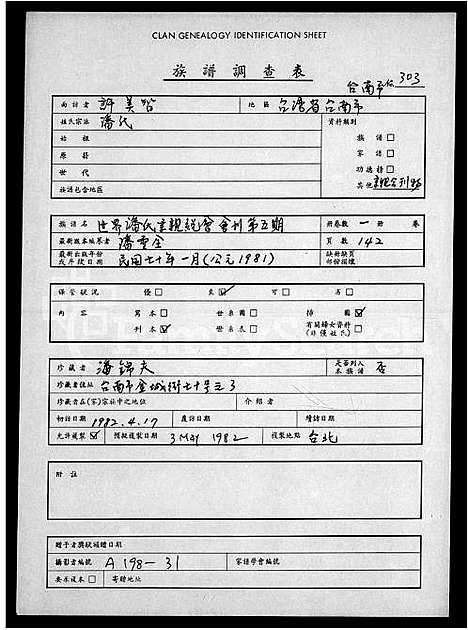 CLAN GENEALOGY IDENTIFICATION SHEET
族譜調查表
台南市 303
面訪者 許美智 地區 台灣省台南市
姓氏宗派 潘氏 資料類別
始祖 族譜 □
原籍 家譜 □
世代 功德榜 □
族譜包含地區 其他 宗親會刊物
族譜名 世界潘氏宗親總會會刊第五期 冊卷數 一 冊 卷
最新版本編纂者 潘雪全 頁數 142
最新出版年份或年代日期 民国七十年一月(公元1981) 缺冊缺頁部份損壞
保管狀況 優 □ 良 ☑ 可 □ 劣 □
內容 寫本 □ 世系圖 □ 插圖 ☑
刊本 ☑ 世系表 □ 有關婦女資料(非僅姓氏) □
珍藏者 潘錦夫 是否列入本族譜 否
珍藏者住址 台南市金城街七十号之3
珍藏者在(家)宗族中之地位 介紹者
初訪日期 1982.4.17 複訪日期 續訪日期
允許複製 ☑ 預擬複製日期 3 May 1982 複製地點 台北
附註
贈予者獎狀頒贈日期
攝影者編號 A198-31 家譜學會編號
要求複本 □ 寄贈日期